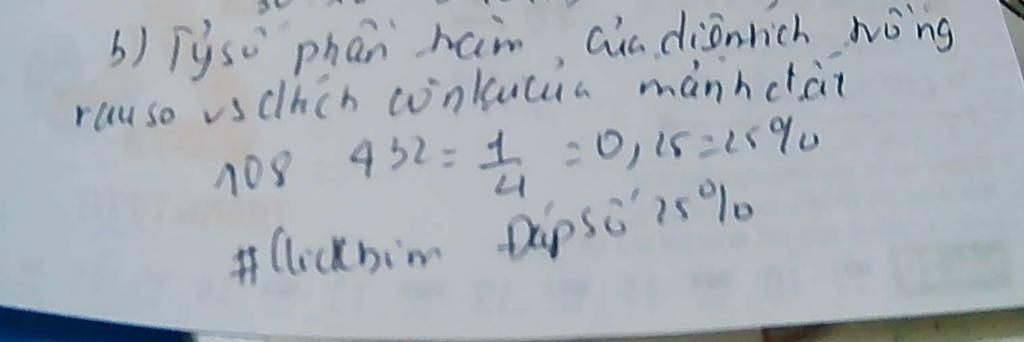 b) Tỷ số phần trăm của diện tích trồng
rau so vs dtích còn lại của mảnh đất
108 432 = 1/4 = 0,25 = 25%
#Clickbim Đáp số 25%